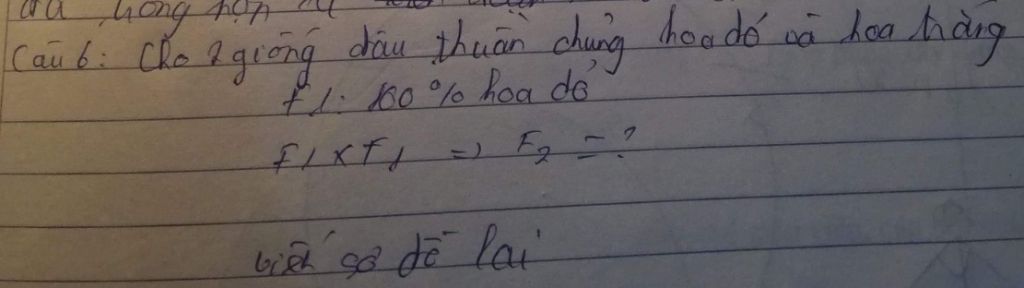 Câu 6: Cho 2 giống đậu thuần chủng hoa đỏ và hoa trắng
F1: 100% hoa đỏ
F1 x F1 => F2 = ?
viết sơ đồ lai